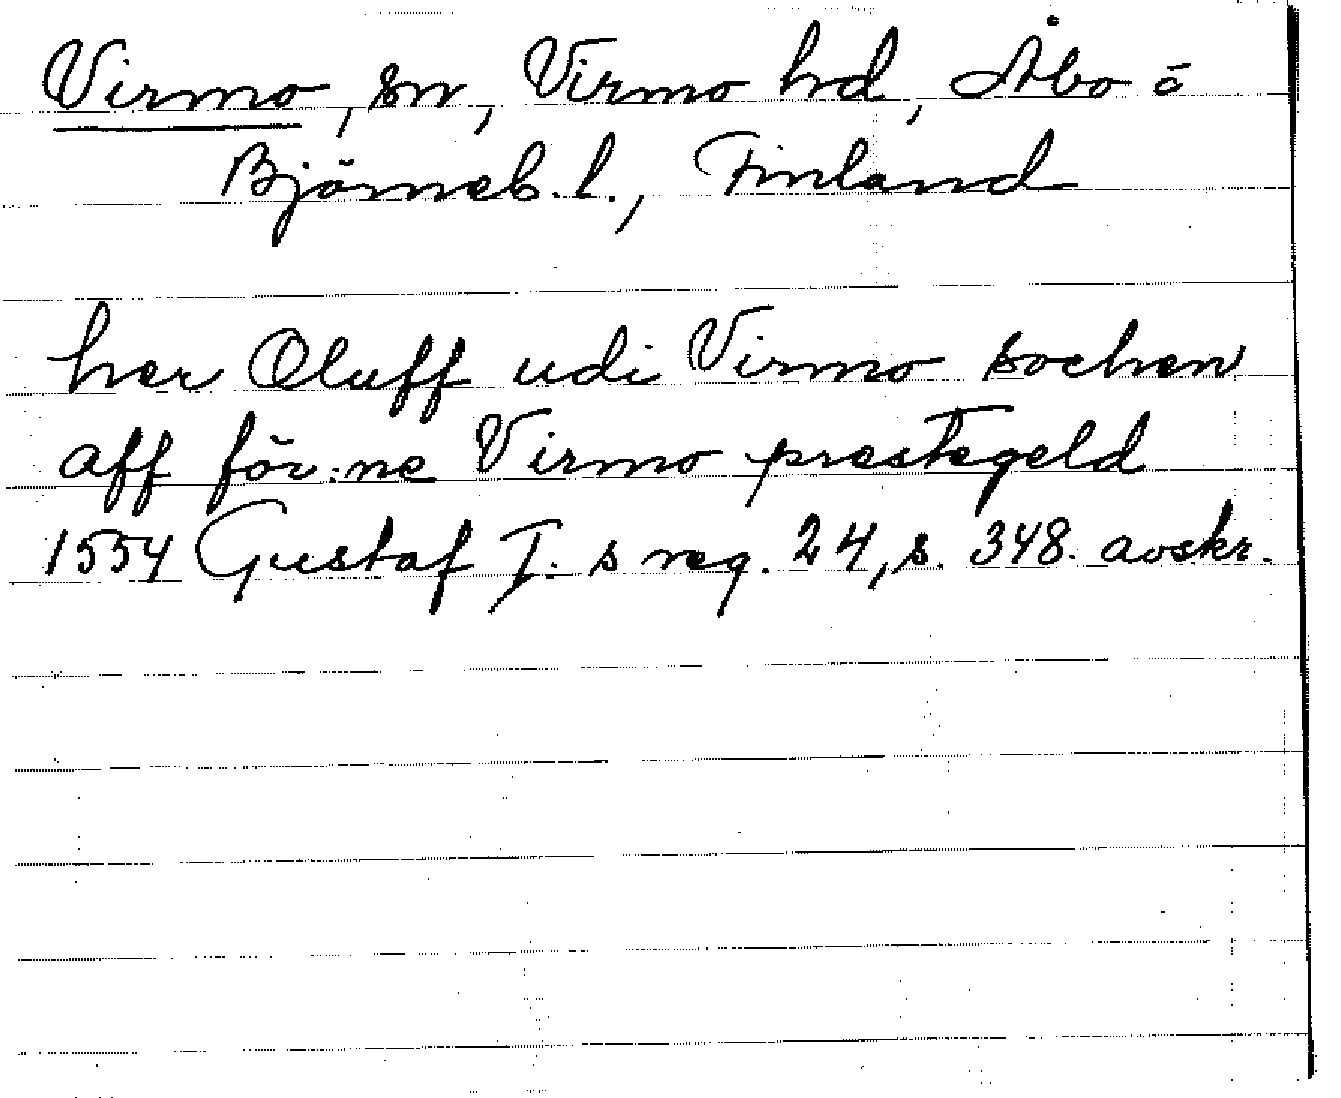 Virmo, sn, Virmo hd, Åbo o
Björneb. l., Finland
her Oluff udi Virmo sochen
aff för:ne Virmo prestegeld
1554 Gustaf I. s reg. 24, s. 348. avskr.